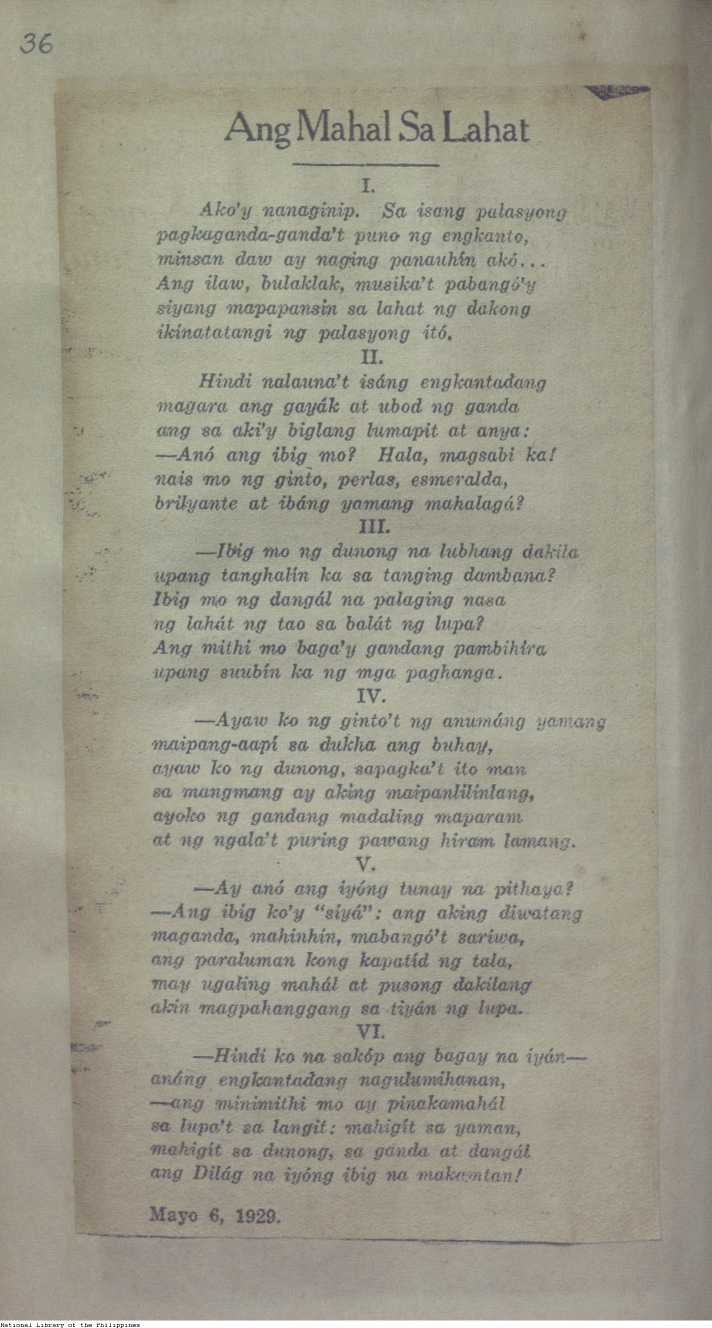 36
Ang Mahal Sa Lahat
I.
Ako'y nanaginip. Sa isang palasyong
pagkaganda-ganda't puno ng engkanto,
minsan daw ay naging panauhín akó...
Ang ilaw, bulaklak, musika't pabangó'y
siyang mapapansin sa lahat ng dakong
ikinatatangi ng palasyong itó.
II.
Hindi nalauna't isáng engkantadang
magara ang gayák at ubod ng ganda
ang sa aki'y biglang lumapit at anya:
—Anó ang ibig mo? Hala, magsabi ka!
nais mo ng ginto, perlas, esmeralda,
brilyante at ibáng yamang mahalagá?
III.
—Ibig mo ng dunong na lubhang dakila
upang tanghalín ka sa tanging dambana?
Ibig mo ng dangál na palaging nasa
ng lahát ng tao sa balát ng lupa?
Ang mithi mo baga'y gandang pambihira
upang suubín ka ng mga paghanga.
IV.
—Ayaw ko ng ginto't ng anumáng yamang
maipang-aapí sa dukha ang buhay,
ayaw ko ng dunong, sapagka't ito man
sa mangmang ay aking maipanlilinlang,
ayoko ng gandang madaling maparam
at ng ngala't puring pawang hiram lamang.
V.
—Ay anó ang iyóng tunay na pithaya?
—Ang ibig ko'y "siyá": ang aking diwatang
maganda, mahinhín, mabangó't sariwa,
ang paraluman kong kapatíd ng tala,
may ugaling mahál at pusong dakilang
akin magpahanggang sa tiyán ng lupa.
VI.
—Hindi ko na sakóp ang bagay na iyán—
anáng engkantadang nagulumihanan,
—ang minimithi mo ay pinakamahál
sa lupa't sa langit: mahigít sa yaman,
mahigít sa dunong, sa ganda at dangál
ang Dilág na iyóng ibig na makamtan!
Mayo 6, 1929.
National Library of the Philippines